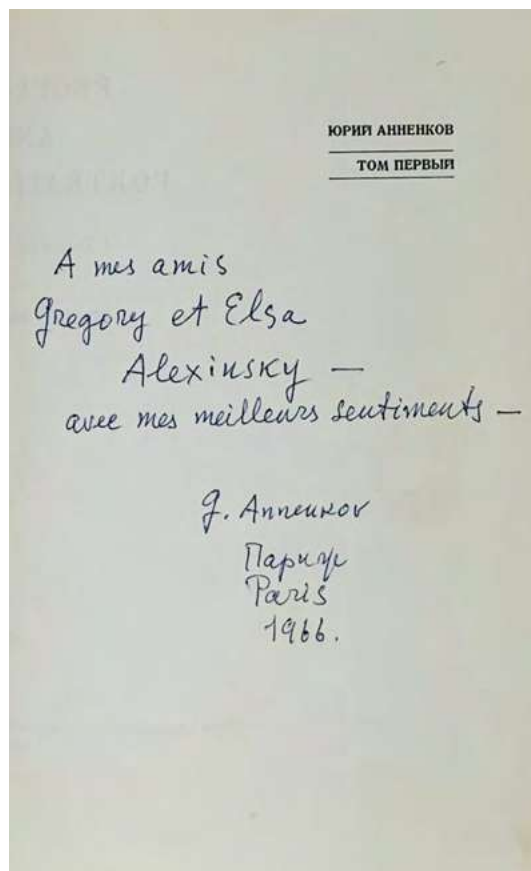 ЮРИЙ АННЕНКОВ
ТОМ ПЕРВЫЙ
A mes amis
Gregory et Elsa
Alexinsky —
avec mes meilleurs sentiments —
G. Annenkov
Париж
Paris
1966.